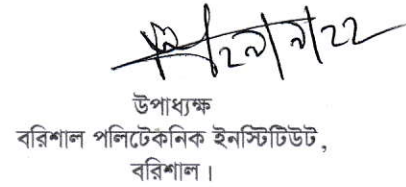 ২৯/৯/২২
উপাধ্যক্ষ
বরিশাল পলিটেকনিক ইনস্টিটিউট,
বরিশাল।